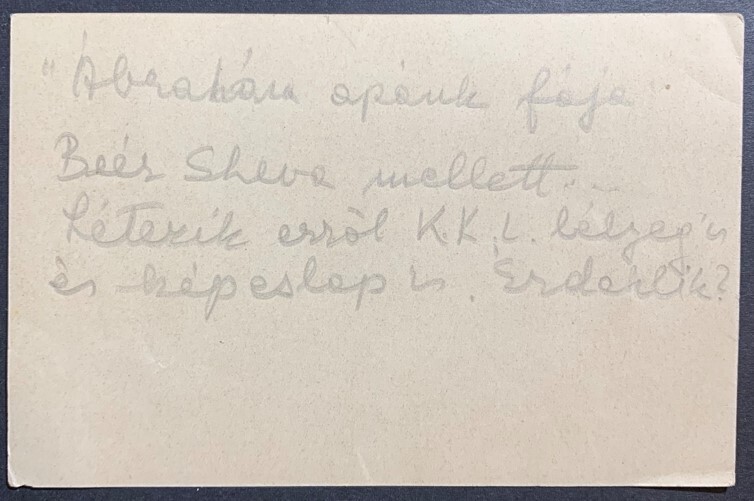 "Ábrahám apánk fája"
Beér Sheva mellett...
Létezik erről K.K.L. bélyeg is
és képeslap is. Érdeklik?